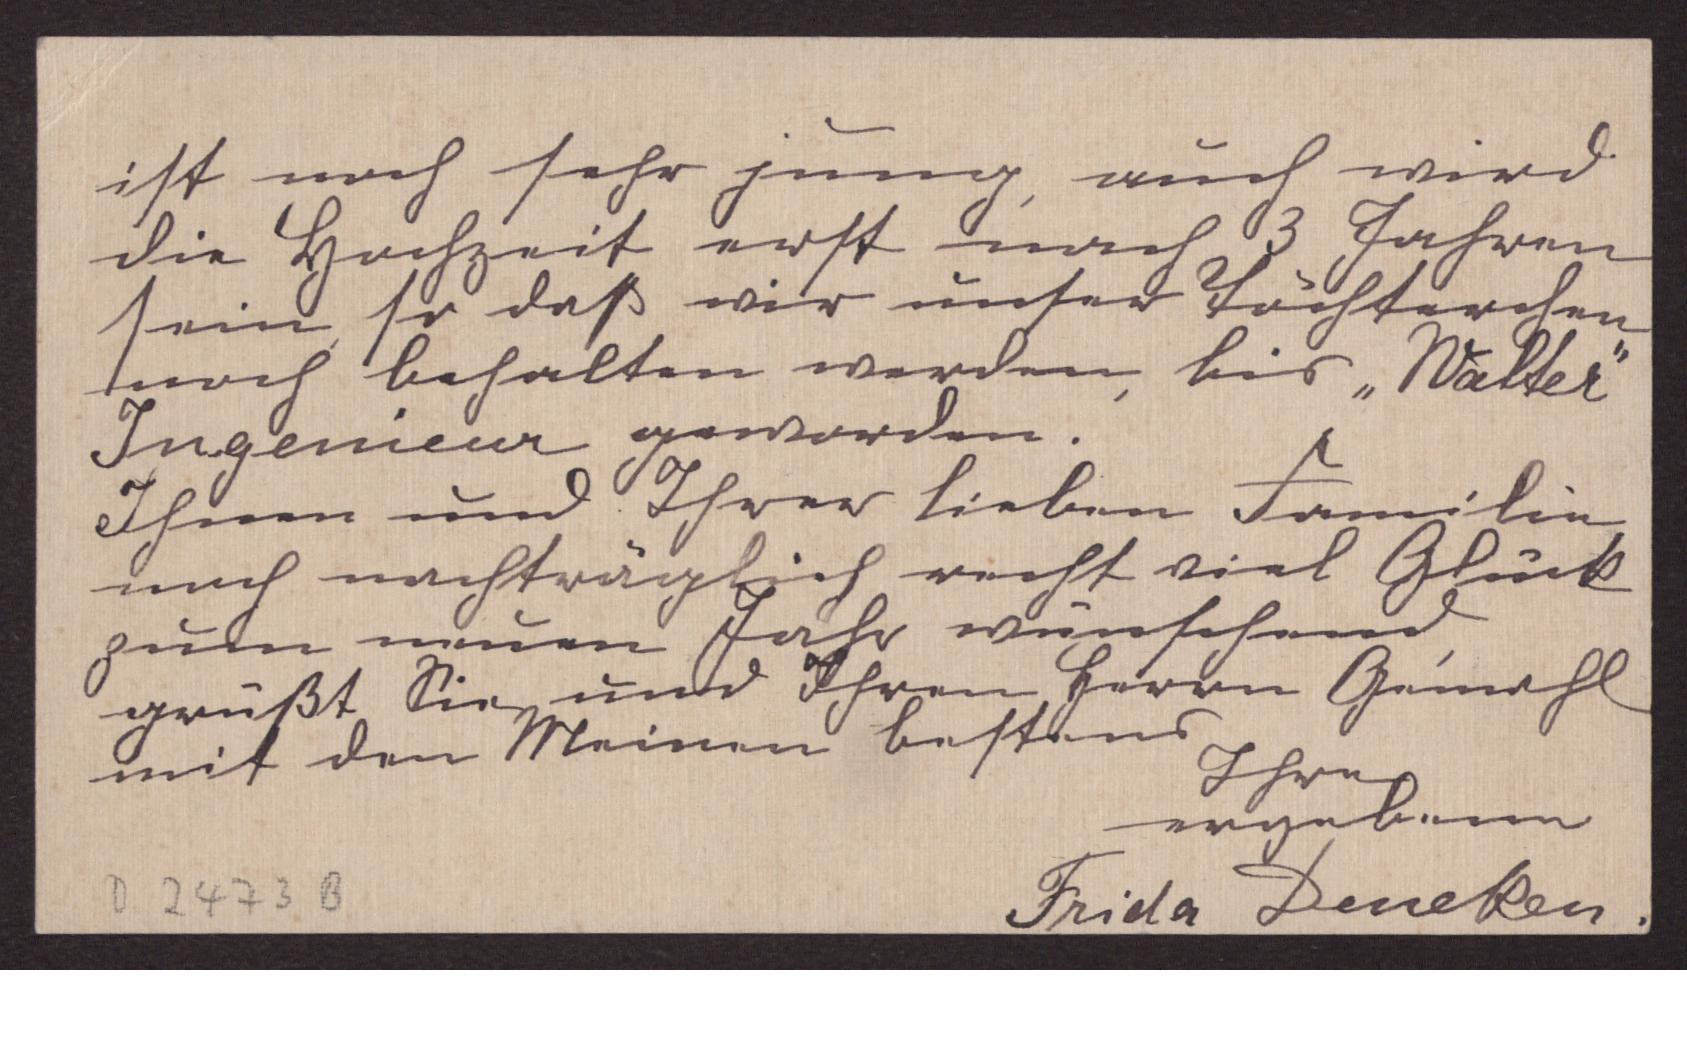 ist noch sehr jung, auch wird
die Hochzeit erst nach 3 Jahren
sein, so daß wir unser Töchterchen
noch behalten werden, bis „Walter"
Ingenieur geworden.
Ihnen und Ihrer lieben Familie
noch nachträglich recht viel Glück
zum neuen Jahr wünschend,
grüßt Sie und Ihren Herrn Gemahl
mit den Meinen bestens
Ihre
ergebene
Frida Deneken.
D 2473 B